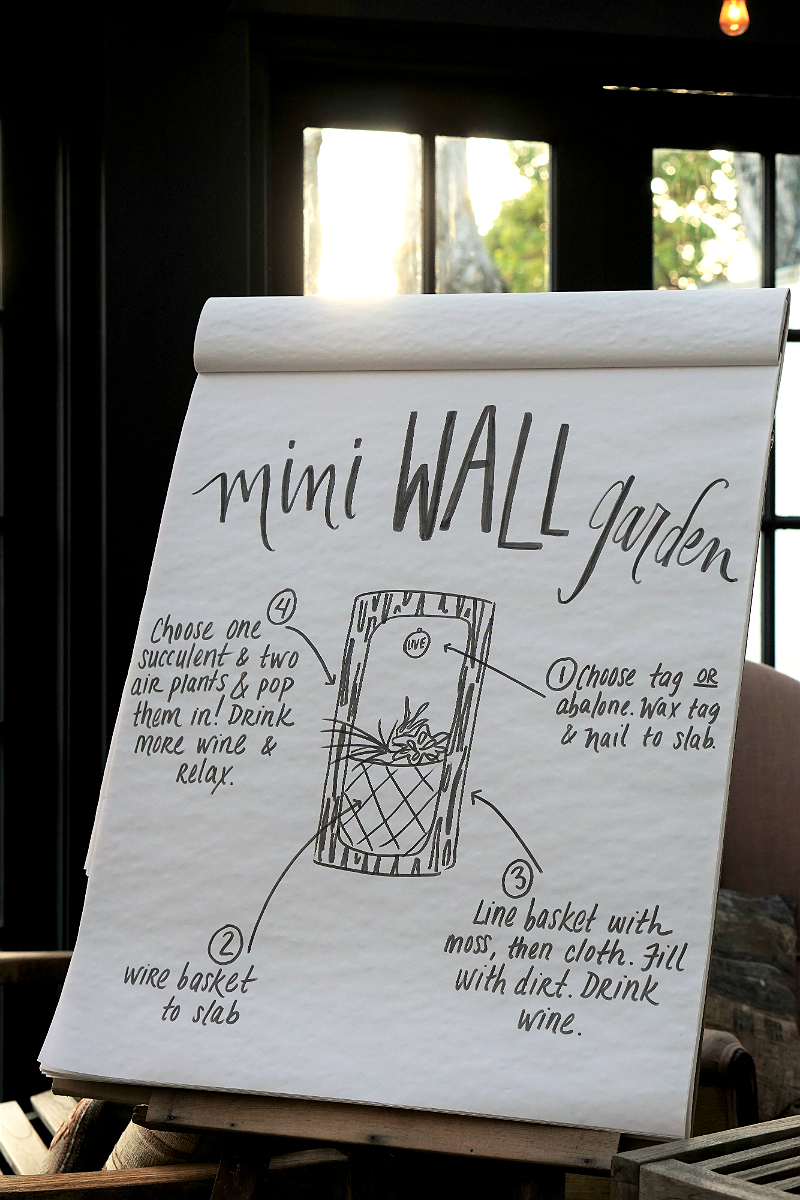 mini WALL garden
LIVE
① Choose tag OR
abalone. Wax tag
& nail to slab.
②
wire basket
to slab
③
Line basket with
moss, then cloth. Fill
with dirt. Drink
wine.
④
Choose one
succulent & two
air plants & pop
them in! Drink
more wine &
relax.